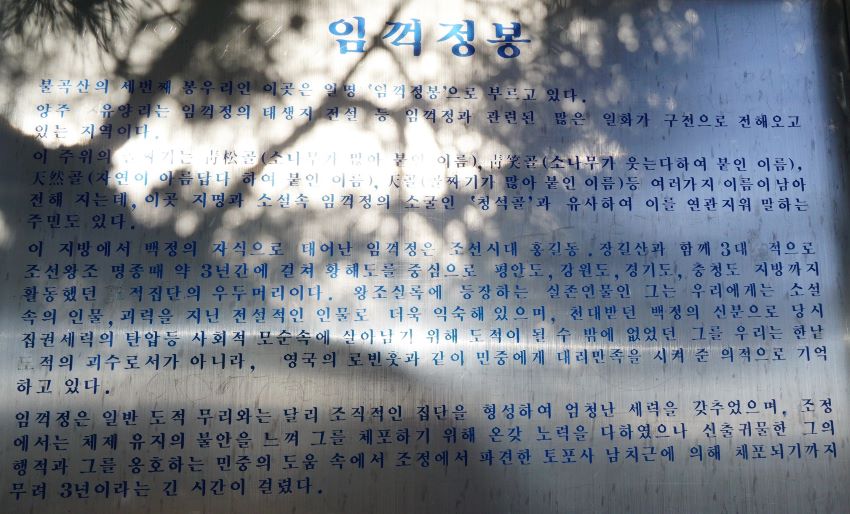 임꺽정봉
불곡산의 세번째 봉우리인 이곳은 일명 '임꺽정봉'으로 부르고 있다.
양주 유양리는 임꺽정의 태생지 전설 등 임꺽정과 관련된 많은 일화가 구전으로 전해오고
있는 지역이다.
이 주위의 靑松골(소나무가 많아 붙인 이름), 靑笑골(소나무가 웃는다하여 붙인 이름),
天然골(자연이 아름답다 하여 붙인 이름), 天골(골짜기가 많아 붙인 이름)등 여러가지 이름이남아
전해 지는데, 이곳 지명과 소설속 임꺽정의 소굴인 '청석골'과 유사하여 이를 연관지위 말하는
주민도 있다.
이 지방에서 백정의 자식으로 태어난 임꺽정은 조선시대 홍길동.장길산과 함께 3대 적으로
조선왕조 명종때 약 3년간에 걸쳐 황해도를 중심으로 평안도,강원도,경기도,충청도 지방까지
활동했던 적집단의 우두머리이다. 왕조실록에 등장하는 실존인물인 그는 우리에게는 소설
속의 인물,괴력을 지닌 전설적인 인물로 더욱 익숙해 있으며, 천대받던 백정의 신분으로 당시
집권세력의 탄압등 사회적 모순속에 살아남기 위해 도적이 될 수 밖에 없었던 그를 우리는 한낱
도적의 괴수로서가 아니라, 영국의 로빈훗과 같이 민중에게 대리만족을 시켜 준 의적으로 기억
하고 있다.
임꺽정은 일반 도적 무리와는 달리 조직적인 집단을 형성하여 엄청난 세력을 갖추었으며, 조정
에서는 체제 유지의 불안을 느껴 그를 체포하기 위해 온갖 노력을 다하였으나 신출귀물한 그의
행적과 그를 옹호하는 민중의 도움 속에서 조정에서 파견한 토포사 남치근에 의해 체포되기까지
무려 3년이라는 긴 시간이 걸렸다.